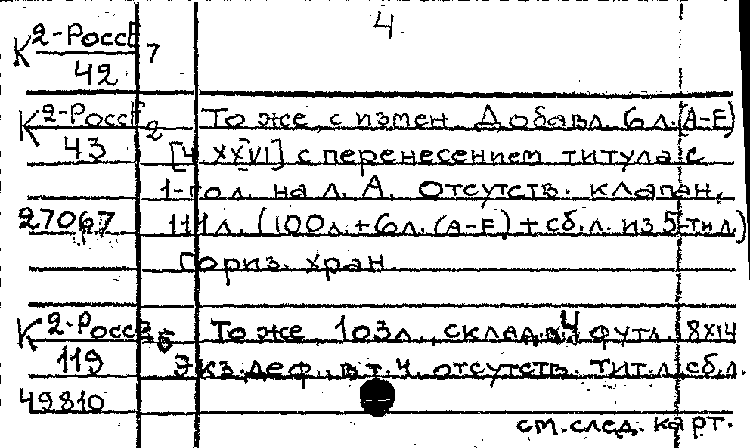 4
К 2-РоссЕ 7
42
К 2-РоссЕ 2 То же с измен. Добавл. 6 л. (А-Е)
43 [Ч XXVI] с перенесением титула с
1-го л. на л. А. Отсутств. клапан,
27067 111 л. (100 л. + 6 л. (А-Е) + сб. л. из 5-ти л.)
Гориз. хран.
К 2-Росс То же, 103 л., склад. в футл. 18х14
119 Экз. деф., в т. ч. отсутств. тит. л. сб. л.
49810
см. след. карт.